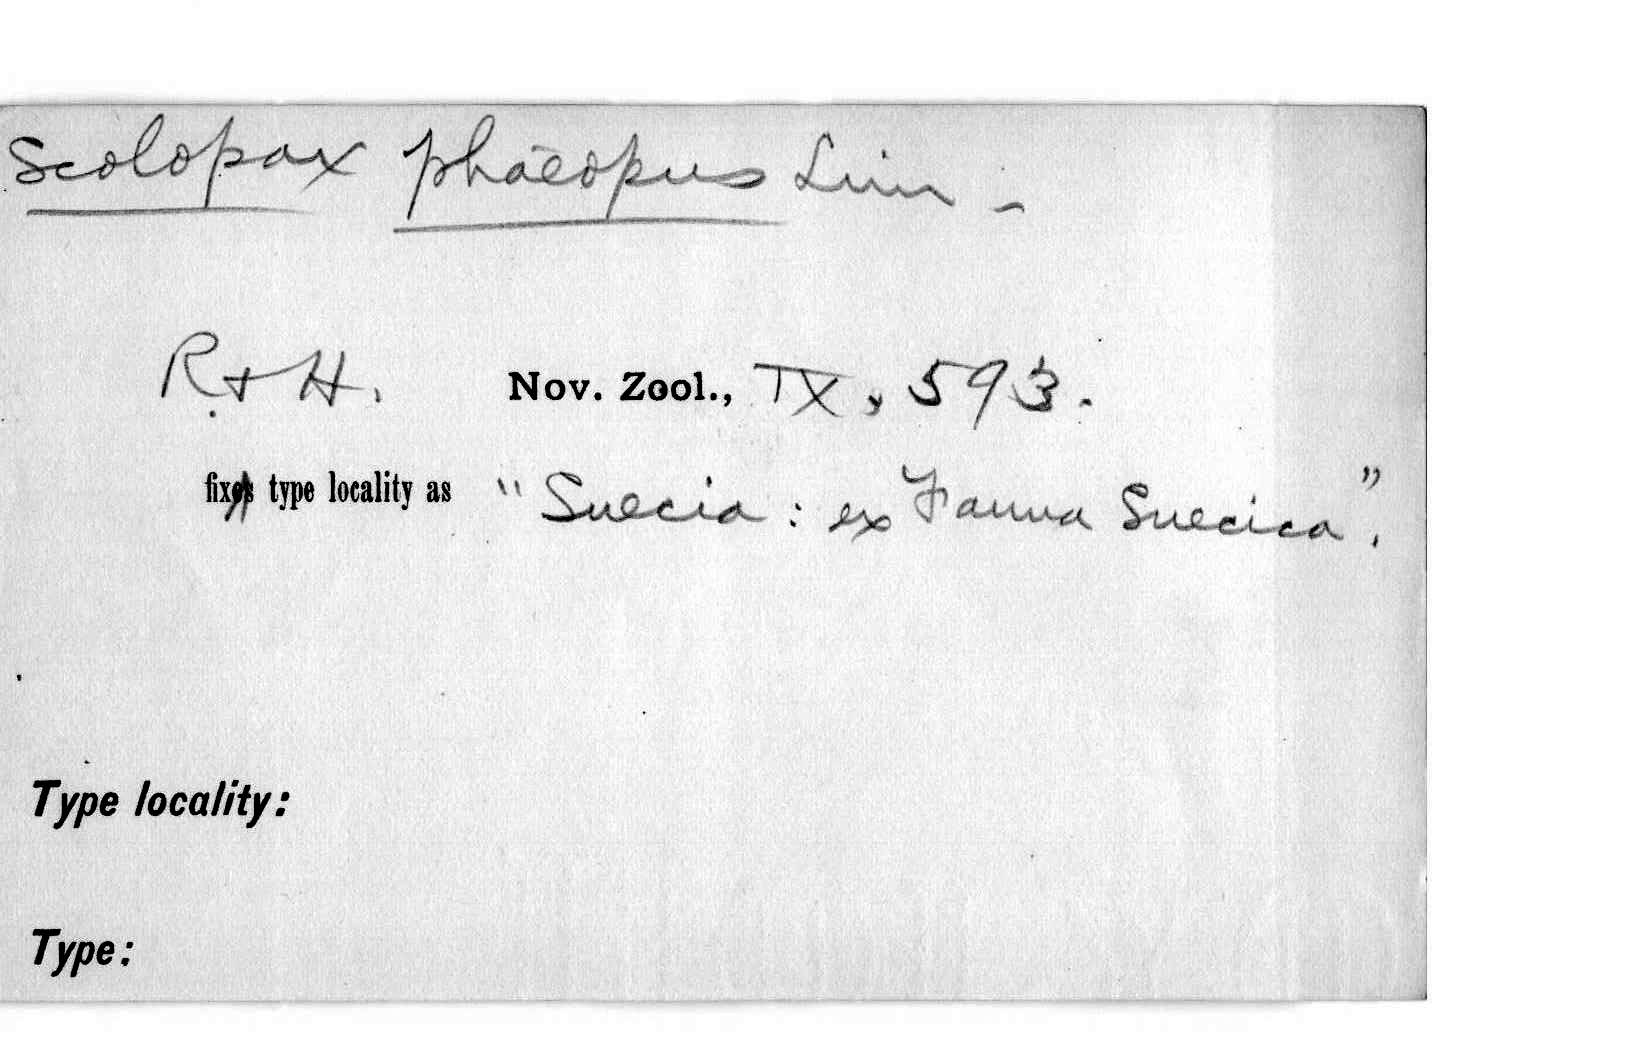 Scolopax phaeopus Linn -
R & H. Nov. Zool., IX, 593.
fix type locality as "Suecia : ex Fauna Suecica".
Type locality:
Type: